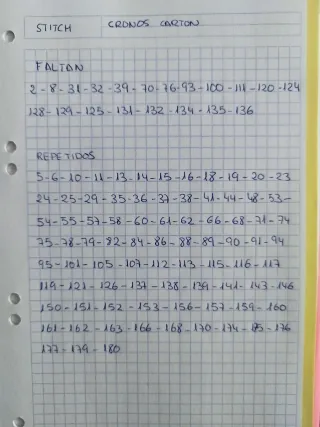 STITCH CRONOS CARTON
FALTAN
2-8-31-32-39-70-76-93-100-111-120-124
128-129-125-131-132-134-135-136
REPETIDOS
5-6-10-11-13-14-15-16-18-19-20-23
24-25-29-35-36-37-38-41-44-48-53-
54-55-57-58-60-61-62-66-68-71-74
75-78-79-82-84-86-88-89-90-91-94
95-101-105-107-112-113-115-116-117
119-121-126-137-138-139-141-143-146
150-151-152-153-156-157-159-160
161-162-163-166-168-170-174-175-176
177-179-180